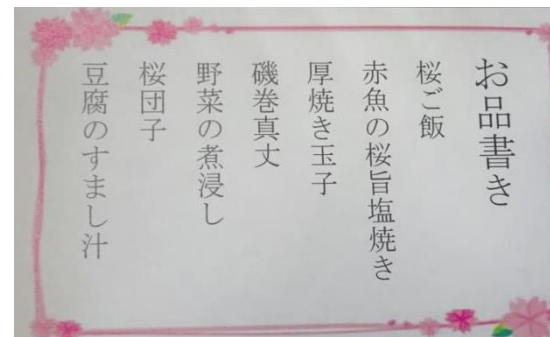 お品書き
桜ご飯
赤魚の桜旨塩焼き
厚焼き玉子
磯巻真丈
野菜の煮浸し
桜団子
豆腐のすまし汁